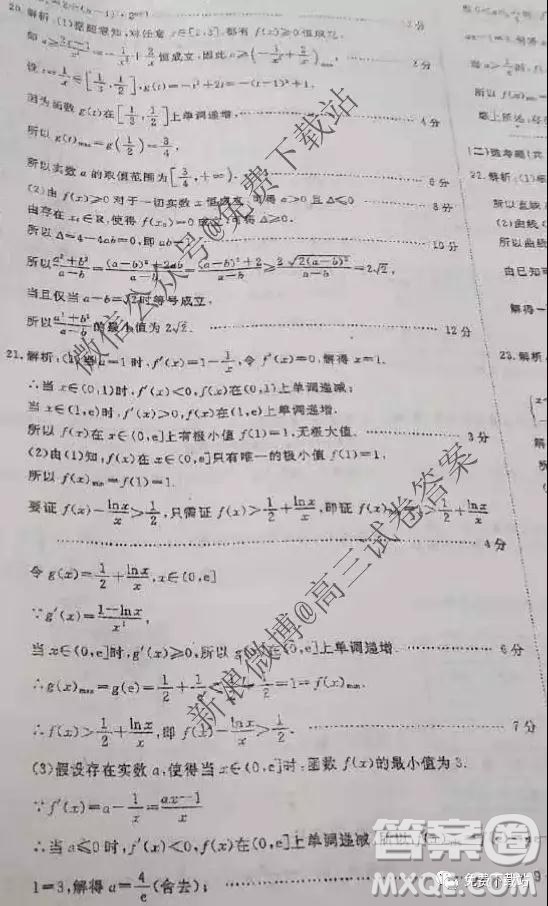 20. 解析:(1)
都有 f(x)≥0 恒成立.
恒成立,因此 a≥(-1/x²+2/x)
设 t=1/x∈[1/3,1/2],g(t)=-t²+2t=-(t-1)²+1,
因为函数 g(t)在[1/3,1/2]上单调递增, 4 分
所以 g(t)max=g(1/2)=3/4,
所以实数 a 的取值范围为[3/4,+∞). 6 分
(2)由 f(x)≥0 对于一切实数 x 恒成立,可得 a>0 且 Δ≤0 8 分
由存在 x₀∈R,使得 f(x₀)=0 成立,可得 Δ≥0.
所以 Δ=4-4ab=0,即 ab=1 10 分
所以 (a²+b²)/(a-b)=((a-b)²+2ab)/(a-b)=((a-b)²+2)/(a-b)≥2√(2(a-b)²)/(a-b)=2√2,
当且仅当 a-b=√2时等号成立,
所以 (a²+b²)/(a-b) 的最小值为 2√2. 12 分
21. 解析:(1)当a=1 时,f'(x)=1-1/x,令 f'(x)=0,解得 x=1.
∴当 x∈(0,1)时,f'(x)<0,f(x)在(0,1)上单调递减;
当 x∈(1,e)时,f'(x)>0,f(x)在(1,e)上单调递增.
所以 f(x)在 x∈(0,e]上有极小值 f(1)=1,无极大值. 3 分
(2)由(1)知,f(x)在(0,e]只有唯一的极小值 f(1)=1,
所以 f(x)min=f(1)=1.
要证 f(x)-lnx/x>1/2,只需证 f(x)>1/2+lnx/x,即证 f(x)min>1/2+lnx/x
4 分
令 g(x)=1/2+lnx/x,x∈(0,e]
∵g'(x)=(1-lnx)/x²,
当 x∈(0,e]时,g'(x)≥0,所以 g(x)在(0,e]上单调递增. 6 分
∴g(x)max=g(e)=1/2+1/e<1/2+1/2=1=f(x)min.
∴f(x)>1/2+lnx/x,即 f(x)-lnx/x>1/2. 7 分
(3)假设存在实数 a,使得当 x∈(0,e]时,函数 f(x)的最小值为 3.
∵f'(x)=a-1/x=(ax-1)/x
∴当 a≤0 时,f'(x)<0,f(x)在(0,e]上单调递减,所以
1=3,解得 a=4/e(舍去); 9
(二)选考题(共
22. 解析:(1)
所以直线
(2)曲线
所以曲线
由已知可
解得
23. 解析
微信公众号@免费下载站
新浪微博@高三试卷答案
答案圈
MXQE.COM
免费下载站